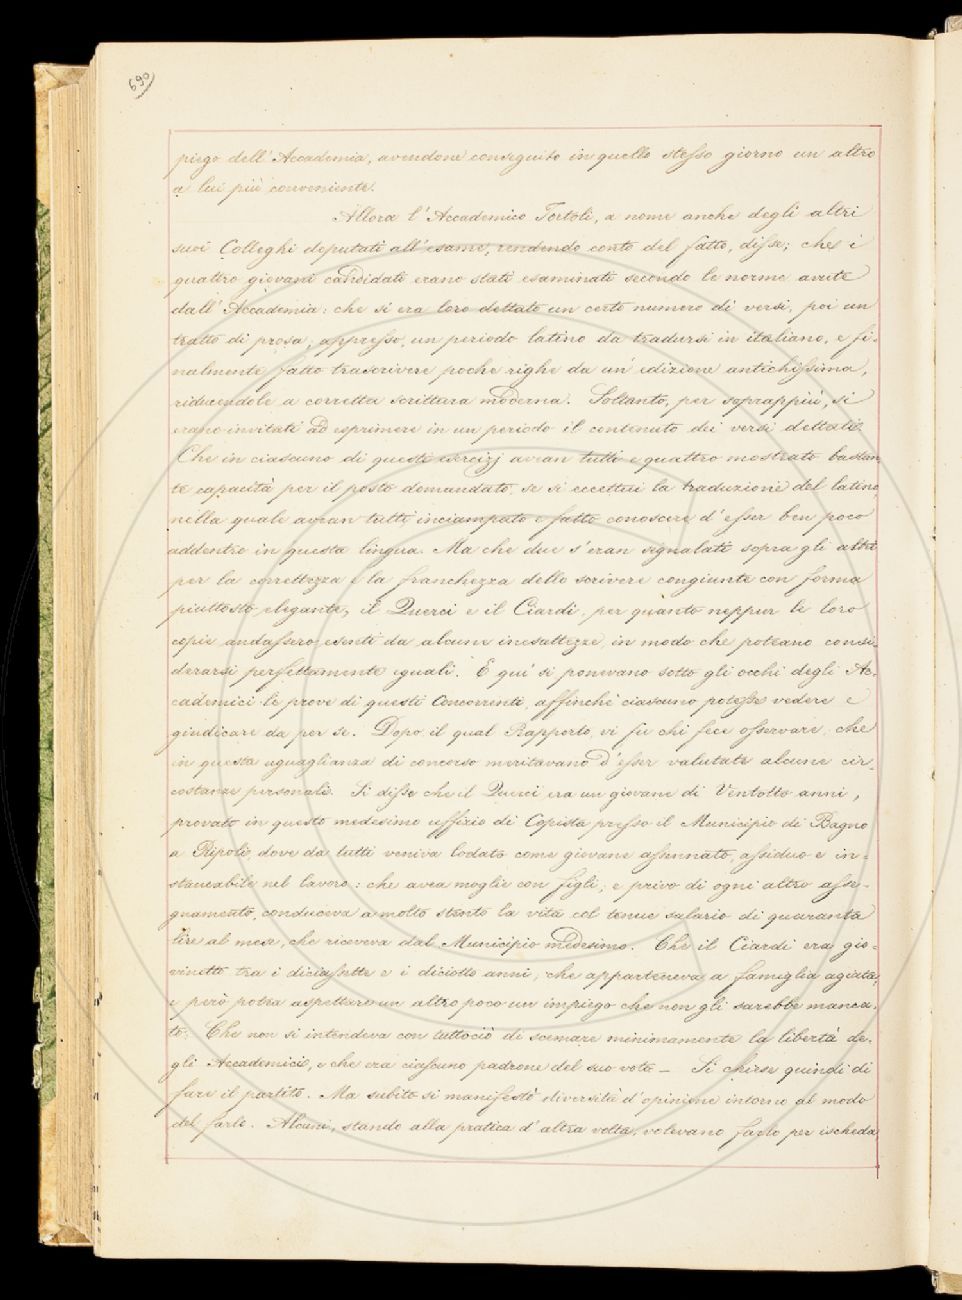 690
piego dell'Accademia, avendone conseguito in quello stesso giorno un altro
a lui più conveniente.
Allora l'Accademico Tortoli, a nome anche degli altri
suoi Colleghi deputati all'esame, rendendo conto del fatto, disse; che i
quattro giovani candidati erano stati esaminati secondo le norme avute
dall'Accademia: che si era loro dettato un certo numero di versi, poi un
tratto di prosa; appresso, un periodo latino da tradursi in italiano, e fi-
nalmente fatto trascrivere poche righe da un'edizione antichissima,
riducendole a corretta scrittura moderna. Soltanto, per soprappiù, si
erano invitati ad esprimere in un periodo il contenuto dei versi dettati.
Che in ciascuno di questi esercizj avean tutti e quattro mostrato bastan-
te capacità per il posto domandato, se si eccettui la traduzione del latino,
nella quale avean tutti inciampato e fatto conoscere d'esser ben poco
addentro in questa lingua. Ma che due s'eran segnalati sopra gli altri
per la correttezza e la franchezza dello scrivere congiunte con forma
piuttosto elegante, il Querci e il Ciardi, per quanto neppur le loro
copie andassero esenti da alcune inesattezze, in modo che poteano consi-
derarsi perfettamente eguali. E qui si ponevano sotto gli occhi degli Ac-
cademici le prove di questi Concorrenti, affinchè ciascuno potesse vedere e
giudicare da per se. Dopo il qual Rapporto, vi fu chi fece osservare, che
in questa uguaglianza di concorso meritavano d'esser valutate alcune cir-
costanze personali. Si disse che il Querci era un giovane di Ventotto anni,
provato in questo medesimo uffizio di Copista presso il Municipio di Bagno
a Ripoli, dove da tutti veniva lodato come giovane assennato, assiduo e in-
stancabile nel lavoro: che avea moglie con figli, e privo di ogni altro asse-
gnamento, conduceva a molto stento la vita col tenue salario di quaranta
lire al mese, che riceveva dal Municipio medesimo. Che il Ciardi era gio-
vinetto tra i diciassette e i diciotto anni, che apparteneva a famiglia agiata,
e però potea aspettare un altro poco un impiego che non gli sarebbe manca-
to: Che non si intendeva con tuttociò di scemare minimamente la libertà de-
gli Accademici, e che era ciascuno padrone del suo voto — Si chiese quindi di
fare il partito. Ma subito si manifestò diversità d'opinione intorno al modo
del farlo. Alcuni, stando alla pratica d'altra volta, volevano farlo per ischeda